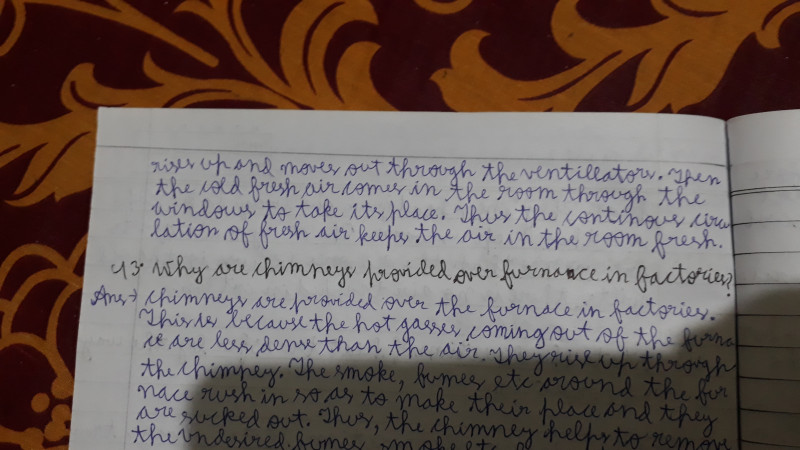 rises up and moves out through the ventillators. Then
the cold fresh air comes in the room through the
windows to take its place. Thus the continous circu
lation of fresh air keeps the air in the room fresh.
43. Why are chimneys provided over furnance in factories?
Ans→ chimneys are provided over the furnace in factories.
This is because the hot gasses coming out of the furna
ce are less dense than the air. They rise up through
the chimney. The smoke, fumes etc around the fur
nace rush in so as to make their place and they
are sucked out. Thus, the chimney helps to remove
the undesired fumes, smoke etc